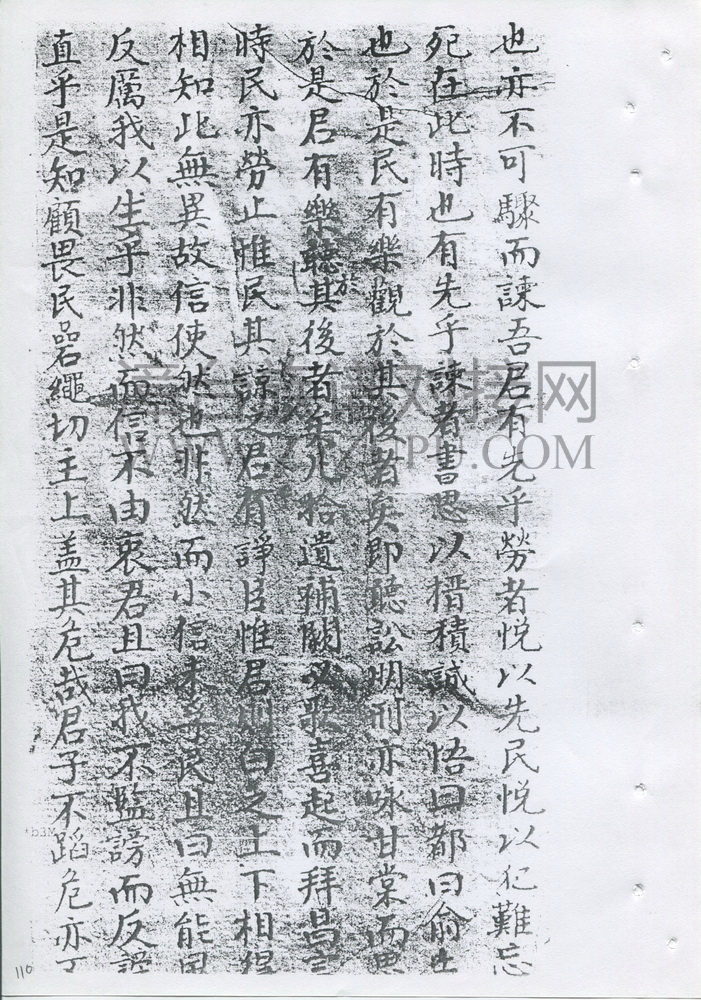 也亦不可驟而諫吾君有先乎勞者悅以先民悅以犯難忘
死在此時也有先乎諫者書思以搢積誠以悟曰都曰俞
也於是民有樂觀於其後者矣即聽訟明刑亦咏甘棠而
於是君有樂聽於其後者矣凡拾遺補闕必歌喜起而拜昌言
時民亦勞止惟民其諒之君有諍臣惟君明之上下相
相知此無異故信使然也非然而小信未孚民且曰無能
反厲我以生乎非然而信不由衷君且曰我不監謗而反
直乎是知顧畏民碞繩切主上蓋其危哉君子不蹈危亦
110
WWW.ZJZUPU.COM